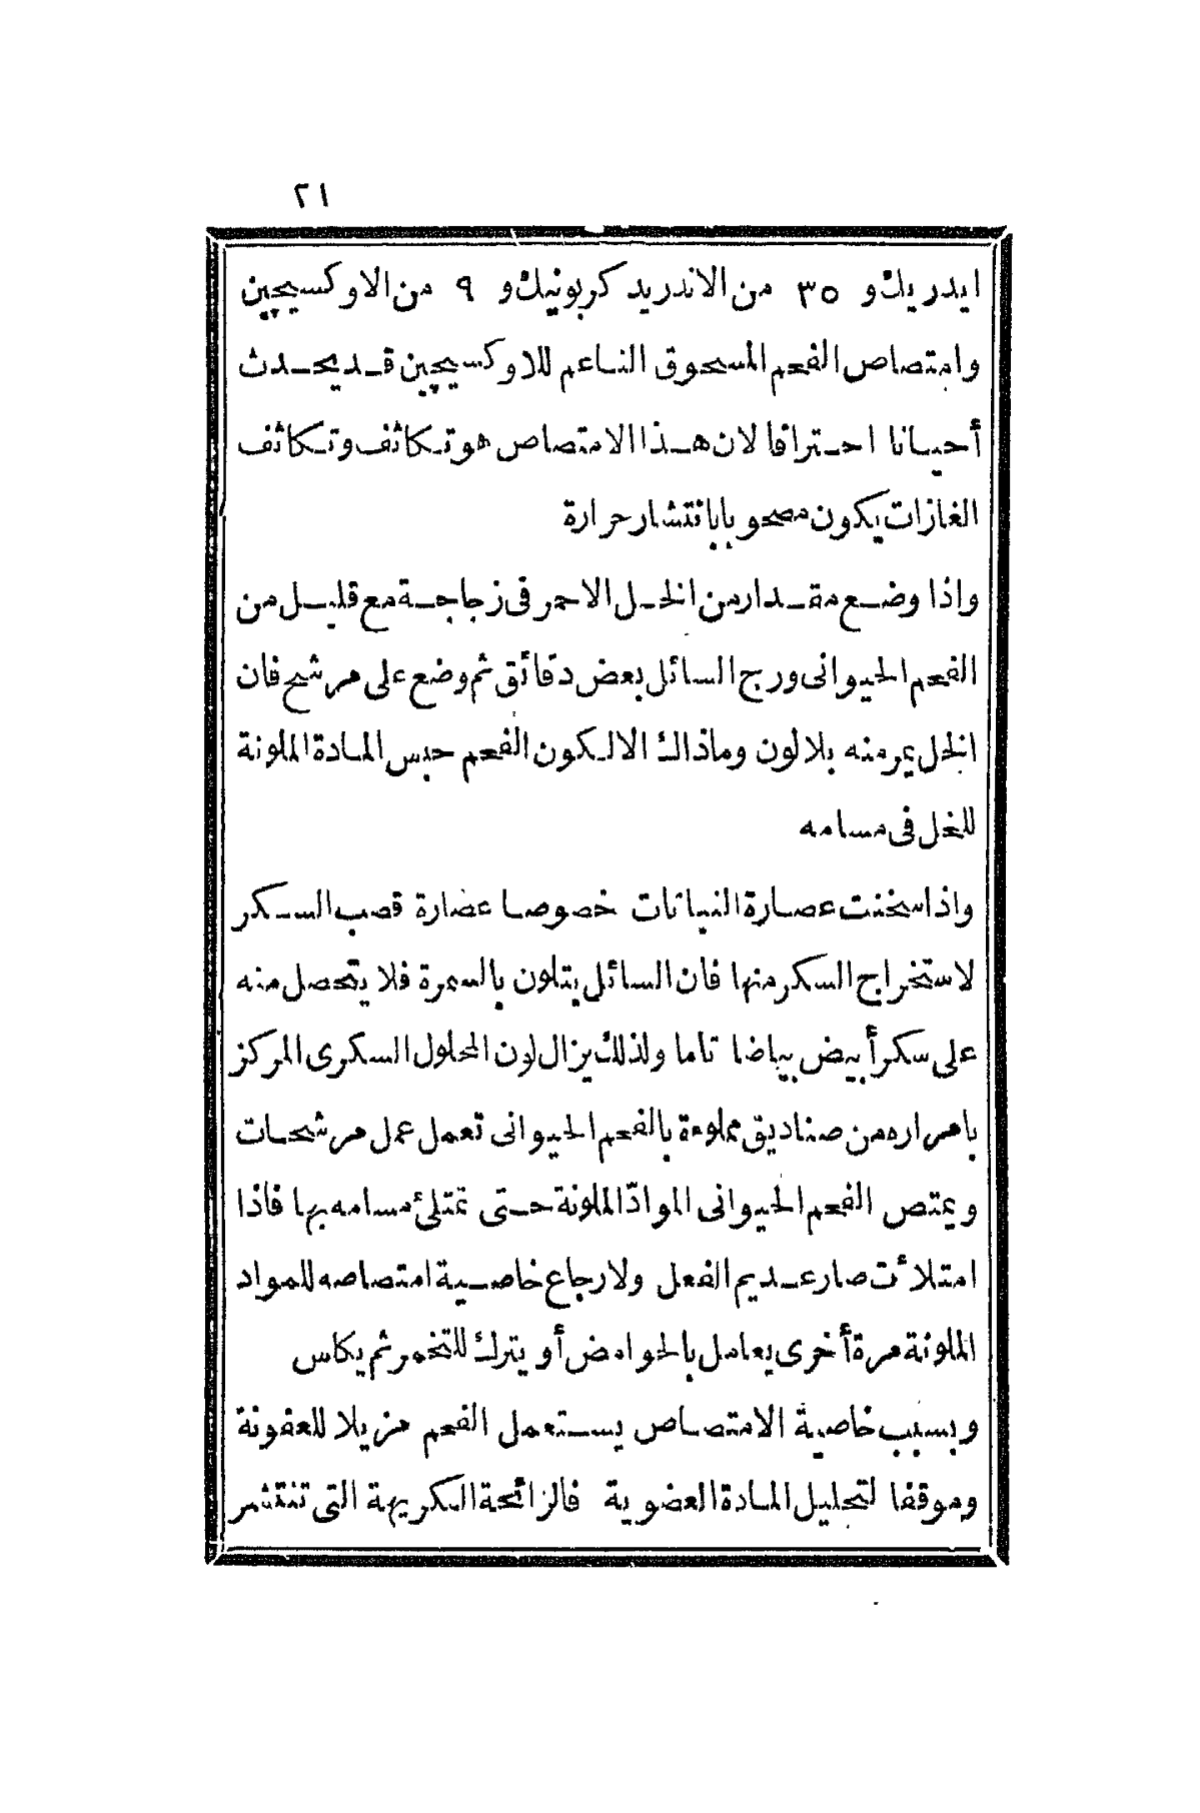 ٢١
ايدريك و ٣٥ من الاندريد كربونيك و ٩ من الاوكسيچين
وامتصاص الفحم المسحوق الناعم للاوكسيچين قد يحدث
أحيانا احتراقا لان هذا الامتصاص هو تكاثف وتكاثف
الغازات يكون مصحوبا بانتشار حرارة
واذا وضع مقدار من الخل الاحمر فى زجاجة مع قليل من
الفحم الحيوانى ورج السائل بعض دقائق ثم وضع على مرشح فان
الخل يمر منه بلا لون وماذاك الالكون الفحم حبس المادة الملونة
للخل فى مسامه
واذا سخنت عصارة النباتات خصوصا عصارة قصب السكر
لاستخراج السكر منها فان السائل يتلون بالسمرة فلا يتحصل منه
على سكر أبيض بياضا تاما ولذلك يزال لون المحلول السكرى المركز
بامراره من صناديق مملوءة بالفحم الحيوانى تعمل عمل مرشحات
ويمتص الفحم الحيوانى الموادّ الملونة حتى تمتلئ مسامه بها فاذا
امتلأت صار عديم الفعل ولارجاع خاصية امتصاصه للمواد
الملونة مرة أخرى يعامل بالحوامض أو يترك للتخمر ثم يكلس
وبسبب خاصية الامتصاص يستعمل الفحم مزيلا للعفونة
وموقفا لتحليل المادة العضوية فالرائحة الكريهة التى تنتشر